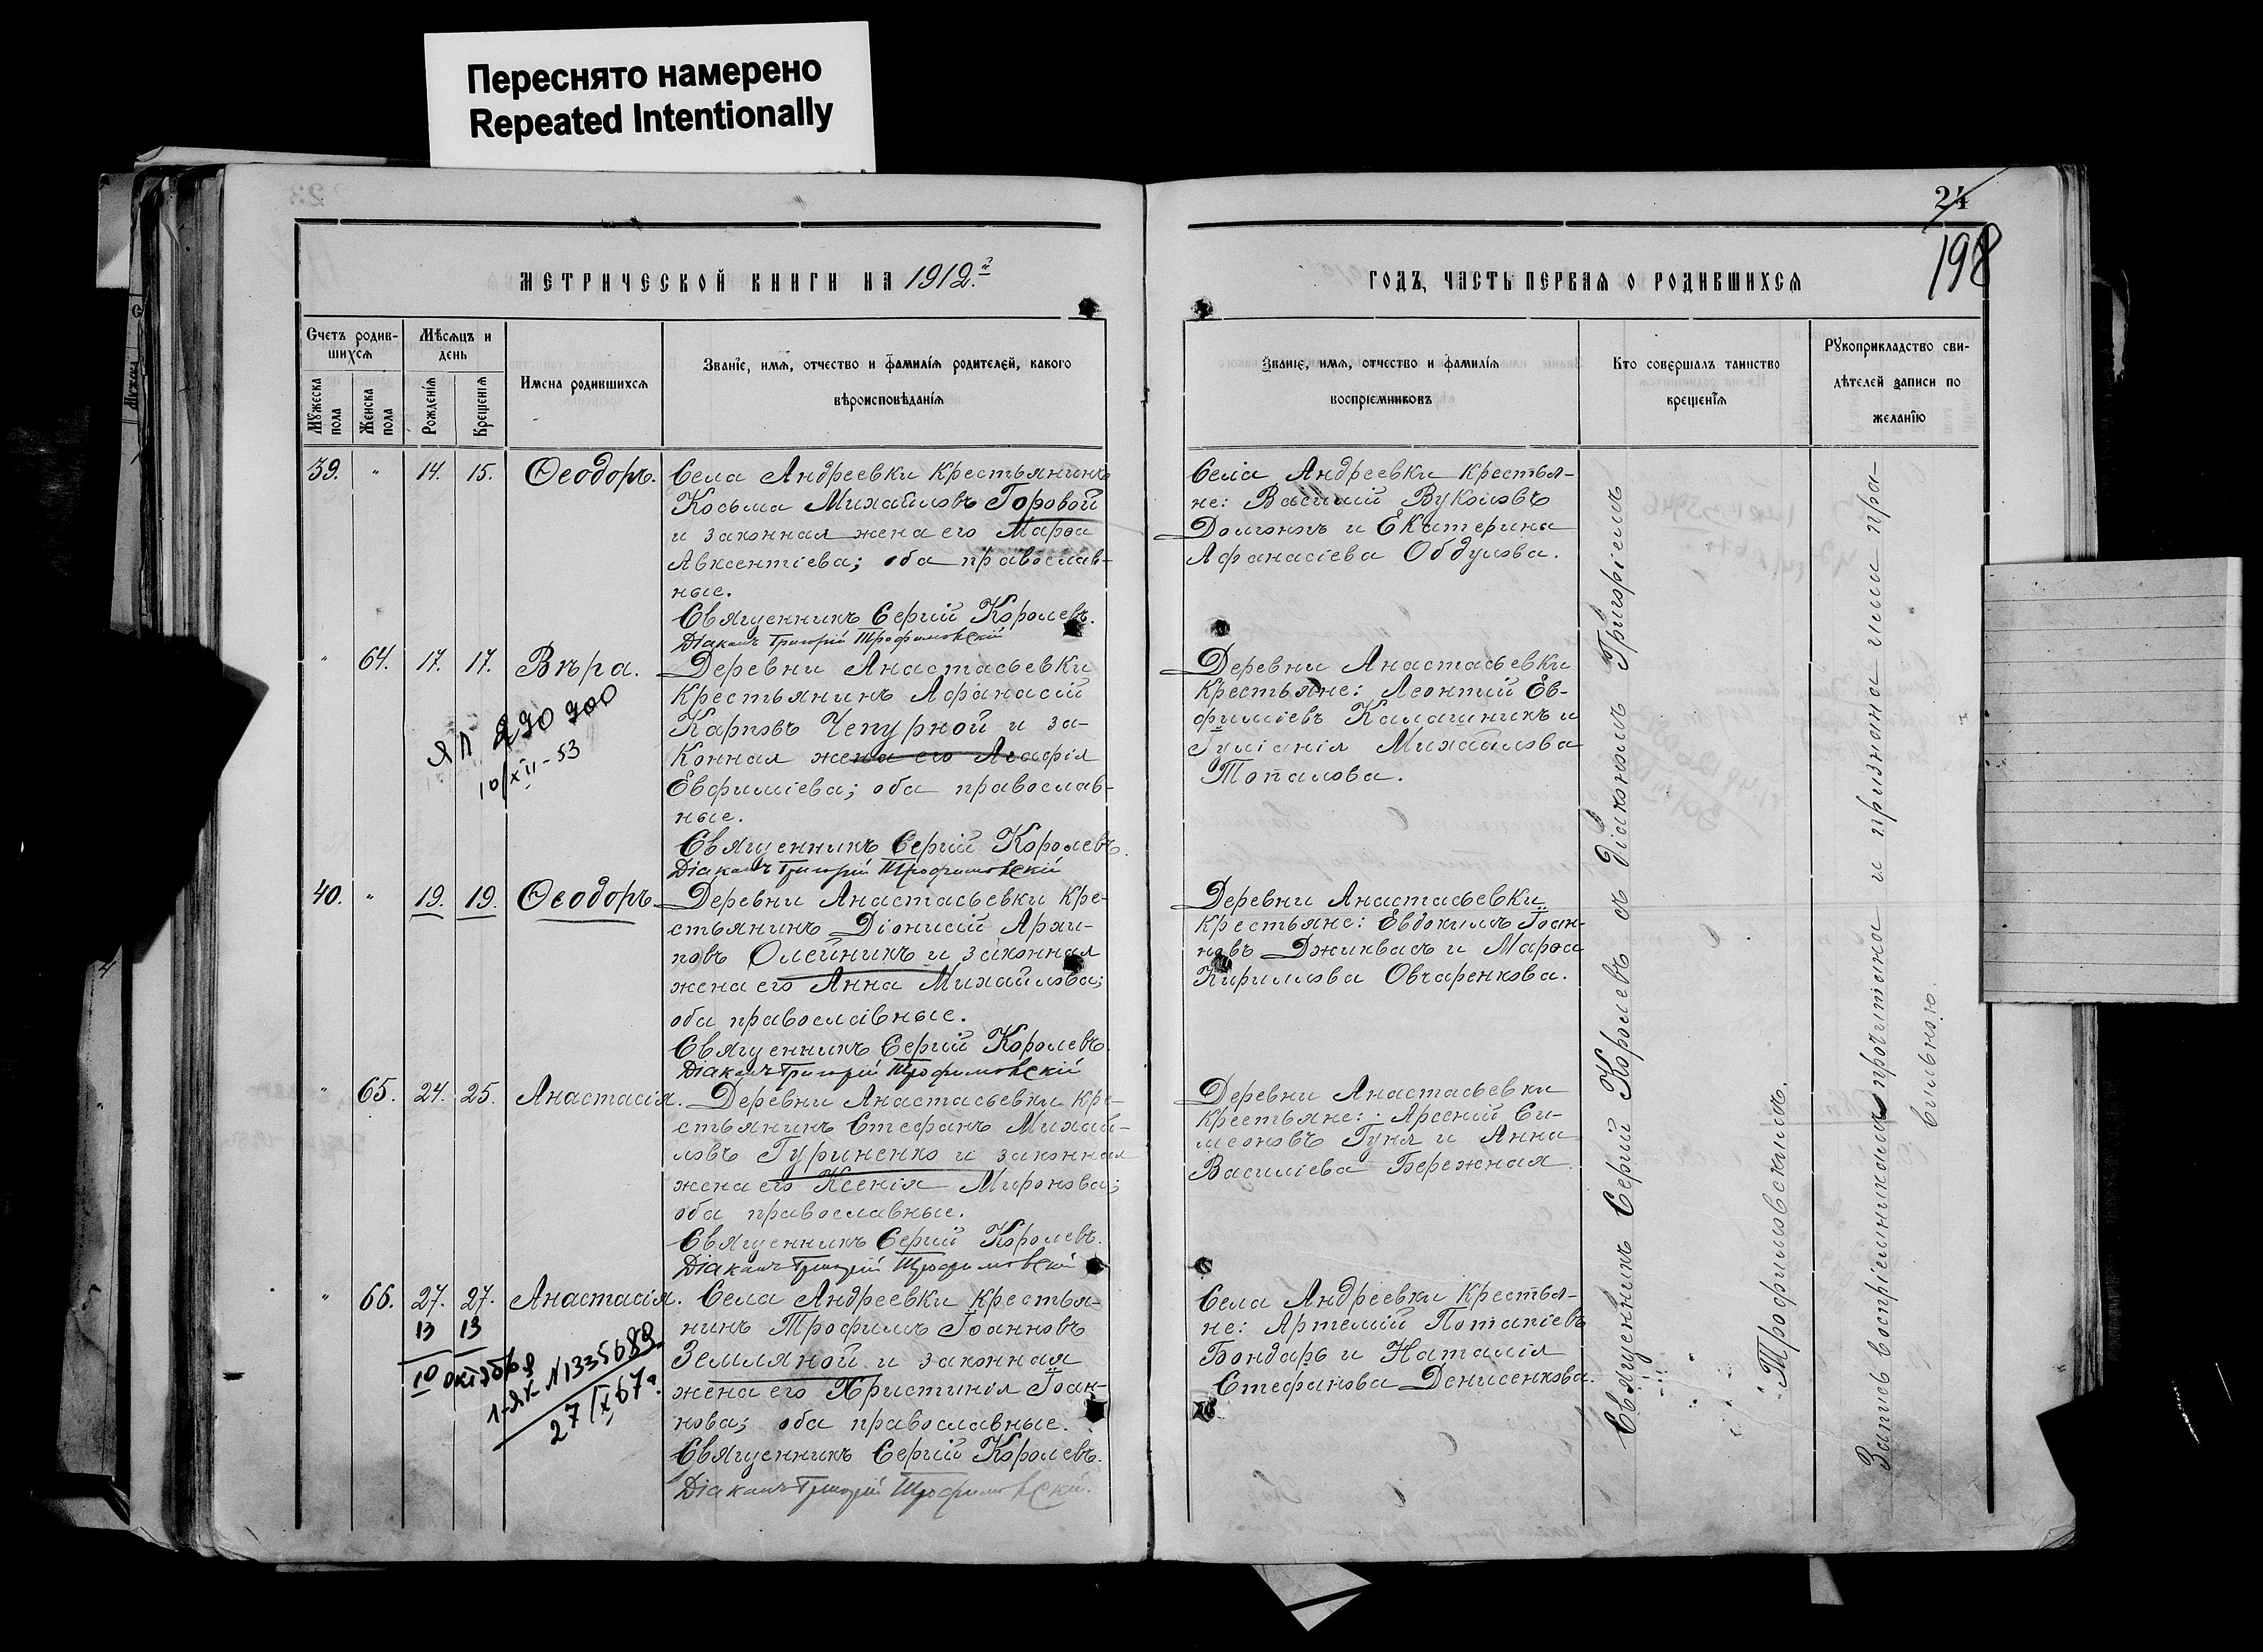 Переснято намерено
Repeated Intentionally
24
198
МЕТРИЧЕСКОЙ КНИГИ НА 1912.й
ГОДЪ, ЧАСТЬ ПЕРВАЯ О РОДИВШИХСЯ
Счетъ родив-
шихся
Мужеска пола
Женска пола
Мѣсяцъ и
день
Рожденія
Крещенія
Имена родившихся
Званіе, имя, отчество и фамилія родителей, какого
вѣроисповѣданія
Званіе, имя, отчество и фамилія
воспріемниковъ
Кто совершалъ таинство
крещенія
Рукоприкладство сви-
дѣтелей записи по
желанію
39. " 14. 15. Ѳеодоръ.
Села Андреевки крестьянинъ
Косьма Михайловъ Горовой
и законная жена его Марѳа
Авксентіева; оба православ-
ные.
Священникъ Сергій Королевъ.
Діаконъ Григорій Трофимовскій
Села Андреевки крестья-
не: Василій Вуколовъ
Долгонъ и Екатерина
Афанасіева Обдулова.
" 64. 17. 17. Вѣра.
ЯП 270700
10/XII-53
Деревни Анастасьевки
крестьянинъ Афанасій
Карповъ Чепурной и за-
конная жена его Агафія
Евфиміева; оба православ-
ные.
Священникъ Сергій Королевъ.
Діаконъ Григорій Трофимовскій
Деревни Анастасьевки
крестьяне: Леонтій Ев-
фиміевъ Калашникъ и
Іуліанія Михайлова
Топалова.
40. " 19. 19. Ѳеодоръ.
Деревни Анастасьевки кре-
стьянинъ Діонисій Архи-
повъ Олейникъ и законная
жена его Анна Михайлова;
оба православные.
Священникъ Сергій Королевъ.
Діаконъ Григорій Трофимовскій
Деревни Анастасьевки
крестьяне: Евдокимъ Іоан-
новъ Джинвасъ и Марѳа
Кириллова Овчаренкова.
" 65. 24. 25. Анастасія.
Деревни Анастасьевки кре-
стьянинъ Стефанъ Михай-
ловъ Гуриненко и законная
жена его Ксенія Миронова;
оба православные.
Священникъ Сергій Королевъ.
Діаконъ Григорій Трофимовскій
Деревни Анастасьевки
крестьяне: Арсеній Си-
меоновъ Гуня и Анна
Василіева Бережная.
" 66. 27. 27. Анастасія.
13 13
10 октября
1-ЯК №1335689
27/X 67г.
Села Андреевки крестья-
нинъ Трофимъ Іоанновъ
Земляной и законная
жена его Христинія Іоан-
нова; оба православные.
Священникъ Сергій Королевъ.
Діаконъ Григорій Трофимовскій.
Села Андреевки крестья-
не: Артемій Потапіевъ
Бондарь и Наталія
Стефанова Денисенкова.
Священникъ Сергій Королевъ съ діакономъ Григоріемъ
Трофимовскимъ.
Запись воспріемниками прочитана и признана ими пра-
вильною.